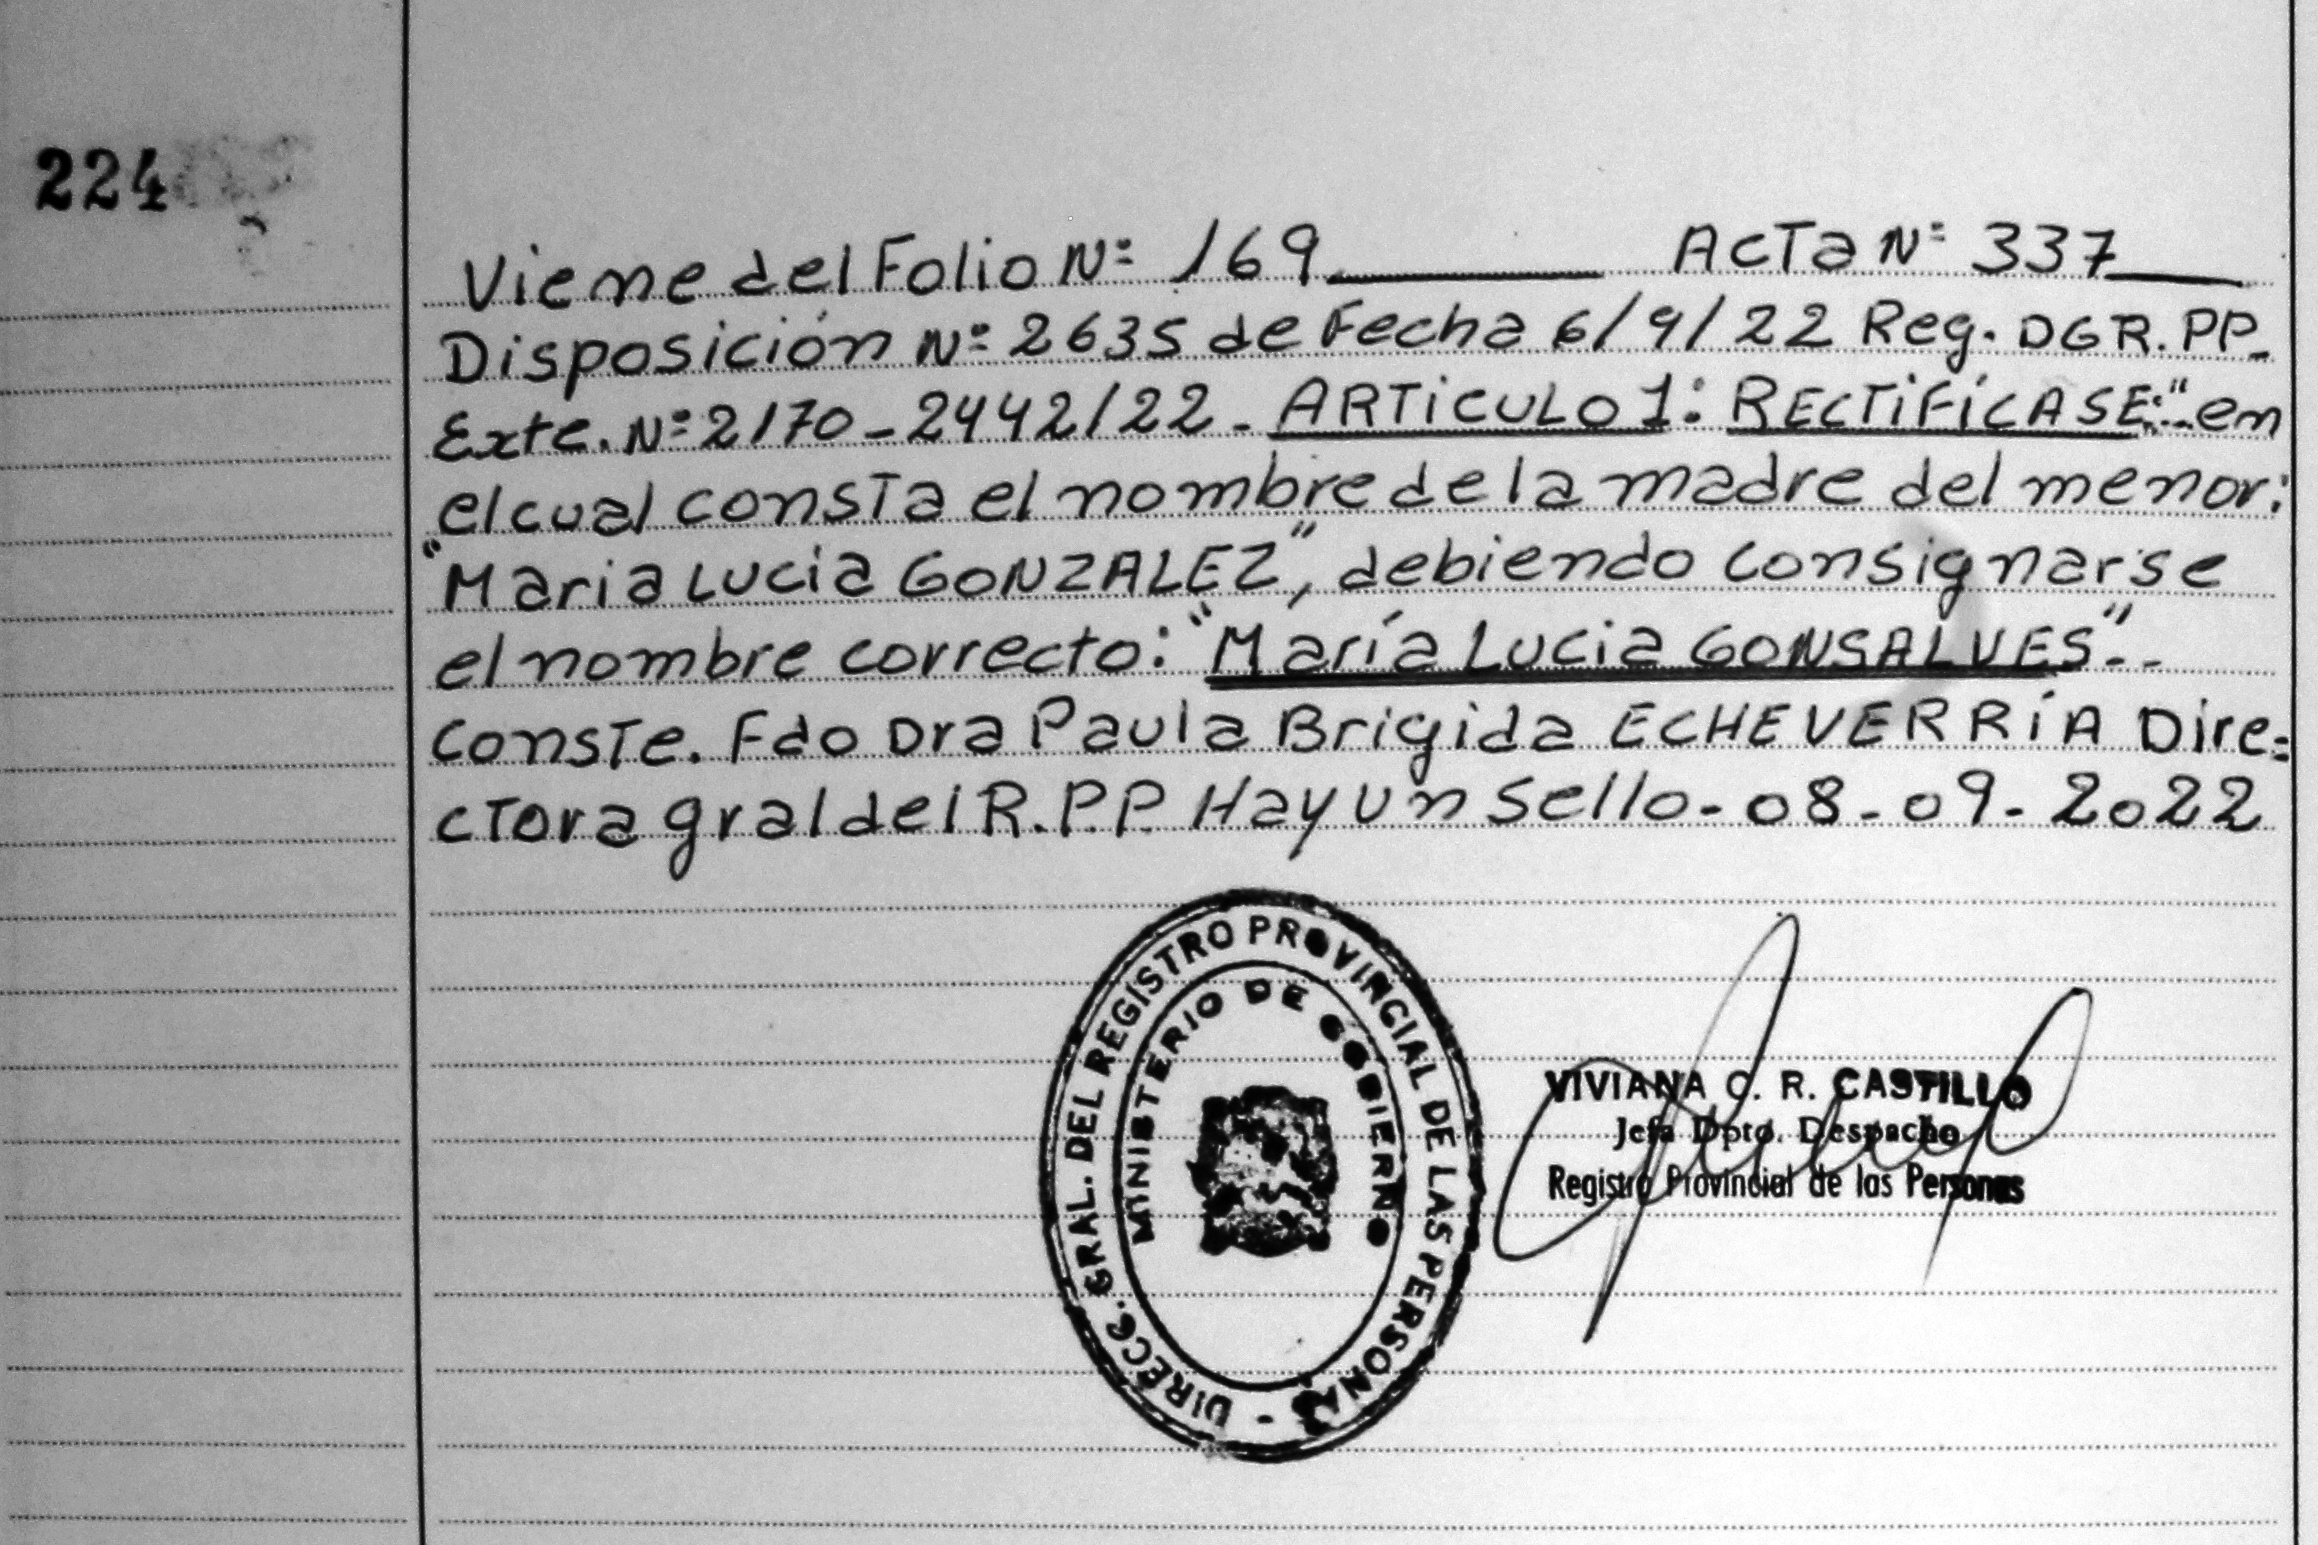 224
Viene del Folio Nº 169 ActaNº 337
Disposición Nº 2635 de Fecha 6/9/22 Reg. DGR.PP_
Exte. Nº 2170-2442/22 - ARTiCULO 1: RECTiFÍCASE:" en
el cual consta el nombre de la madre del menor:
"Maria Lucia GONZALEZ", debiendo consignarse
el nombre correcto: "María Lucia GONSALVES".-
Conste. Fdo Dra Paula Brigida ECHEVERRíA Dire=
ctora gral del R.P.P. Hay un Sello-08-09-2022
DIRECC. GRAL. DEL REGISTRO PROVINCIAL DE LAS PERSONAS -
MINISTERIO DE GOBIERNO
VIVIANA C. R. CASTILLO
Jefa Dpto. Despacho
Registro Provincial de las Personas